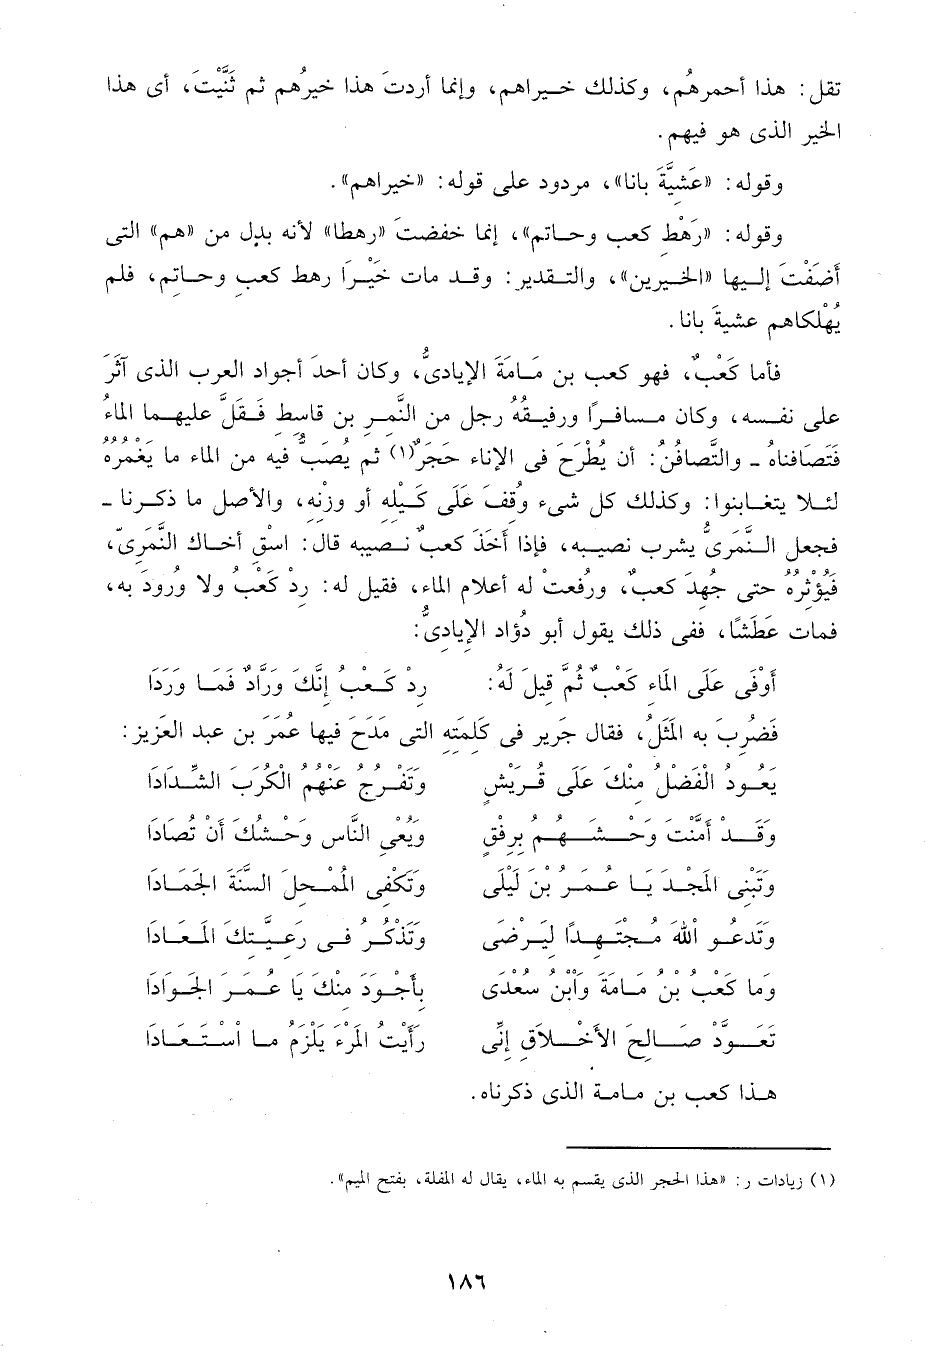 تقل: هذا أحمرهُم، وكذلك خـيراهم، وإنما أردتَ هذا خيرُهم ثم ثَنَّيْتَ، أى هذا
الخير الذى هو فيهم.
وقوله: «عَشيَّةَ بانا»، مردود على قوله: «خيراهم».
وقوله: «رَهْط كعب وحـاتم»، إنما خفضتَ «رهطا» لأنه بدل من «هم» التى
أضَفْتَ إلـيها «الخـيرين»، والتـقدير: وقـد مات خَيْـرَا رهط كعب وحـاتم، فلم
يُهْلكاهم عشيةَ بانا.
فأما كَعْبٌ، فهو كعب بن مَـامَةَ الإيادىُّ، وكان أحدَ أجواد العرب الذى آثَرَ
على نفـسه، وكان مـسافـرًا ورفيـقُهُ رجل من النَّمـر بن قاسط فَـقَلَّ عليهـما الماءُ
فَتَصَافناهُ ـ والتَّصافُنُ: أن يُطْرَحَ فى الإناء حَجَرٌ(١) ثم يُصَبَّ فيه من الماء ما يَغْمُرُهُ
لئـلا يتغـابنوا: وكذلك كل شىء وُقفَ عَلَى كَـيْله أو وزنْه، والأصل ما ذكـرنا ـ
فجعل النَّـمَرىُّ يشرب نصيبـه، فإذا أخَذَ كعبٌ نـصيبه قال: اسْقِ أخـاك النَّمَرىّ،
فَيُؤْثرُهُ حتى جُهدَ كعبٌ، ورفُعتْ له أعلام الماء، فقيل له: ردْ كَعْبُ ولا وُرودَ به،
فمات عَطَشًا، ففى ذلك يقول أبو دُؤاد الإيادىُّ:
أَوْفَى عَلَى الماءِ كَعْبٌ ثُمَّ قيلَ لَهُ: رِدْ كَـعْـبُ إنَّكَ وَرَّادٌ فَمَـا وَرَدَا
فَضُرِبَ به المَثَلُ، فقال جَرير فى كَلِمَتِه التى مَدَحَ فيها عُمَرَ بن عبد العزيز:
يَعُـودُ الْفَضْلُ مِنْكَ عَلَى قُـرَيْشٍ وَتَفْـرُجُ عَنْهُمُ الْكُرَبَ الشِّـدَادَا
وَقَـــدْ أَمَّنْتَ وَحْـــشَـــهُـــمْ بِرِفْقٍ وَيُعْيِى النَّاسَ وَحْـشُكَ أَنْ تُصَادَا
وَتَبْنِى الْمَجْـدَ يَـا عُـمَـرُ بْنَ لَيْلَى وَتَكْفِى الْمُمْـحِلَ السَّنَةَ الجَمَـادَا
وَتَدعُـو اللهَ مُـجْتَـهِـدًا لِيَرْضَى وَتَذْكُـرُ فـى رَعِـيَّـتِكَ المَـعَـادَا
وَمَا كَعْبُ بْنُ مَـامَةَ وَابْنُ سُعْدَى بِأَجْـوَدَ مِنْكَ يَا عُـمَـرَ الجَـوَادَا
تَعَـــوَّدْ صَـــالِحَ الأَخْـــلاَقِ إنِّى رَأَيْتُ المَرْءَ يَلْزَمُ مـا اسْـتَـعَـادَا
هـذا كعب بن مـامـة الذى ذكرناه.
(١) زيادات ر: «هذا الحجر الذى يقسم به الماء، يقال له المقلة، بفتح الميم».
١٨٦